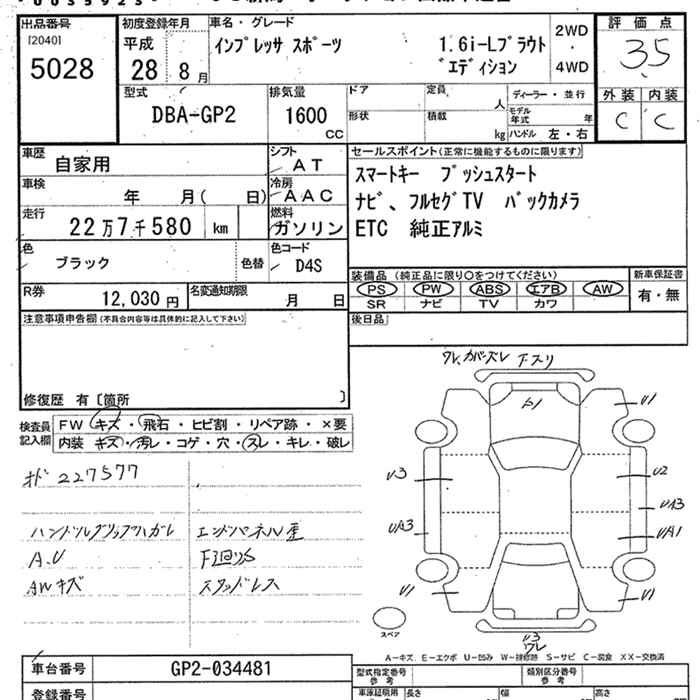 出品番号
[2040]
5028
初度登録年月
平成
28 8月
車名・グレード
インプレッサ スポーツ
1.6i-Lプラウト
゛エディション
2WD
・
4WD
評価点
3.5
外装 内装
C C
型式
DBA-GP2
排気量
1600
CC
ドア
形状
定員
人
積載
kg
ディーラー・並行
モデル年式 年
ハンドル 左・右
車歴
自家用
シフト
AT
車検
年 月( 日)
冷房
AAC
走行
22万7千580 km
燃料
ガソリン
色
ブラック
色替
色コード
D4S
R券
12,030円
名変通知期限
月 日
セールスポイント(正常に機能するものに限ります)
スマートキー プッシュスタート
ナビ、フルセグTV バックカメラ
ETC 純正アルミ
装備品(純正品に限り○をつけてください)
新車保証書
PS PW ABS エアB AW
SR ナビ TV カワ
有・無
後日品
注意事項申告欄(不具合内容等は具体的に記入して下さい)
修復歴 有[箇所 ]
検査員記入欄
FW キズ・飛石・ヒビ割・リペア跡・×要
内装 キズ・汚レ・コゲ・穴・スレ・キレ・破レ
オド 227577
ハンドルグリップハガレ
A.U
AWキズ
エンドパネル歪
F廻りS
スタッドレス
ワレ、カバーズレ 下スリ
U1
U3
U2
UA3
UA3
UA1
U1
U1
U3
ワレ
スペア
A-キズ E-エクボ U-凹み W-補修跡 S-サビ C-腐食 XX-交換済
車台番号
GP2-034481
登録番号
型式指定番号
参考
類別区分番号
参考
車庫証明用
長さ
幅
高さ